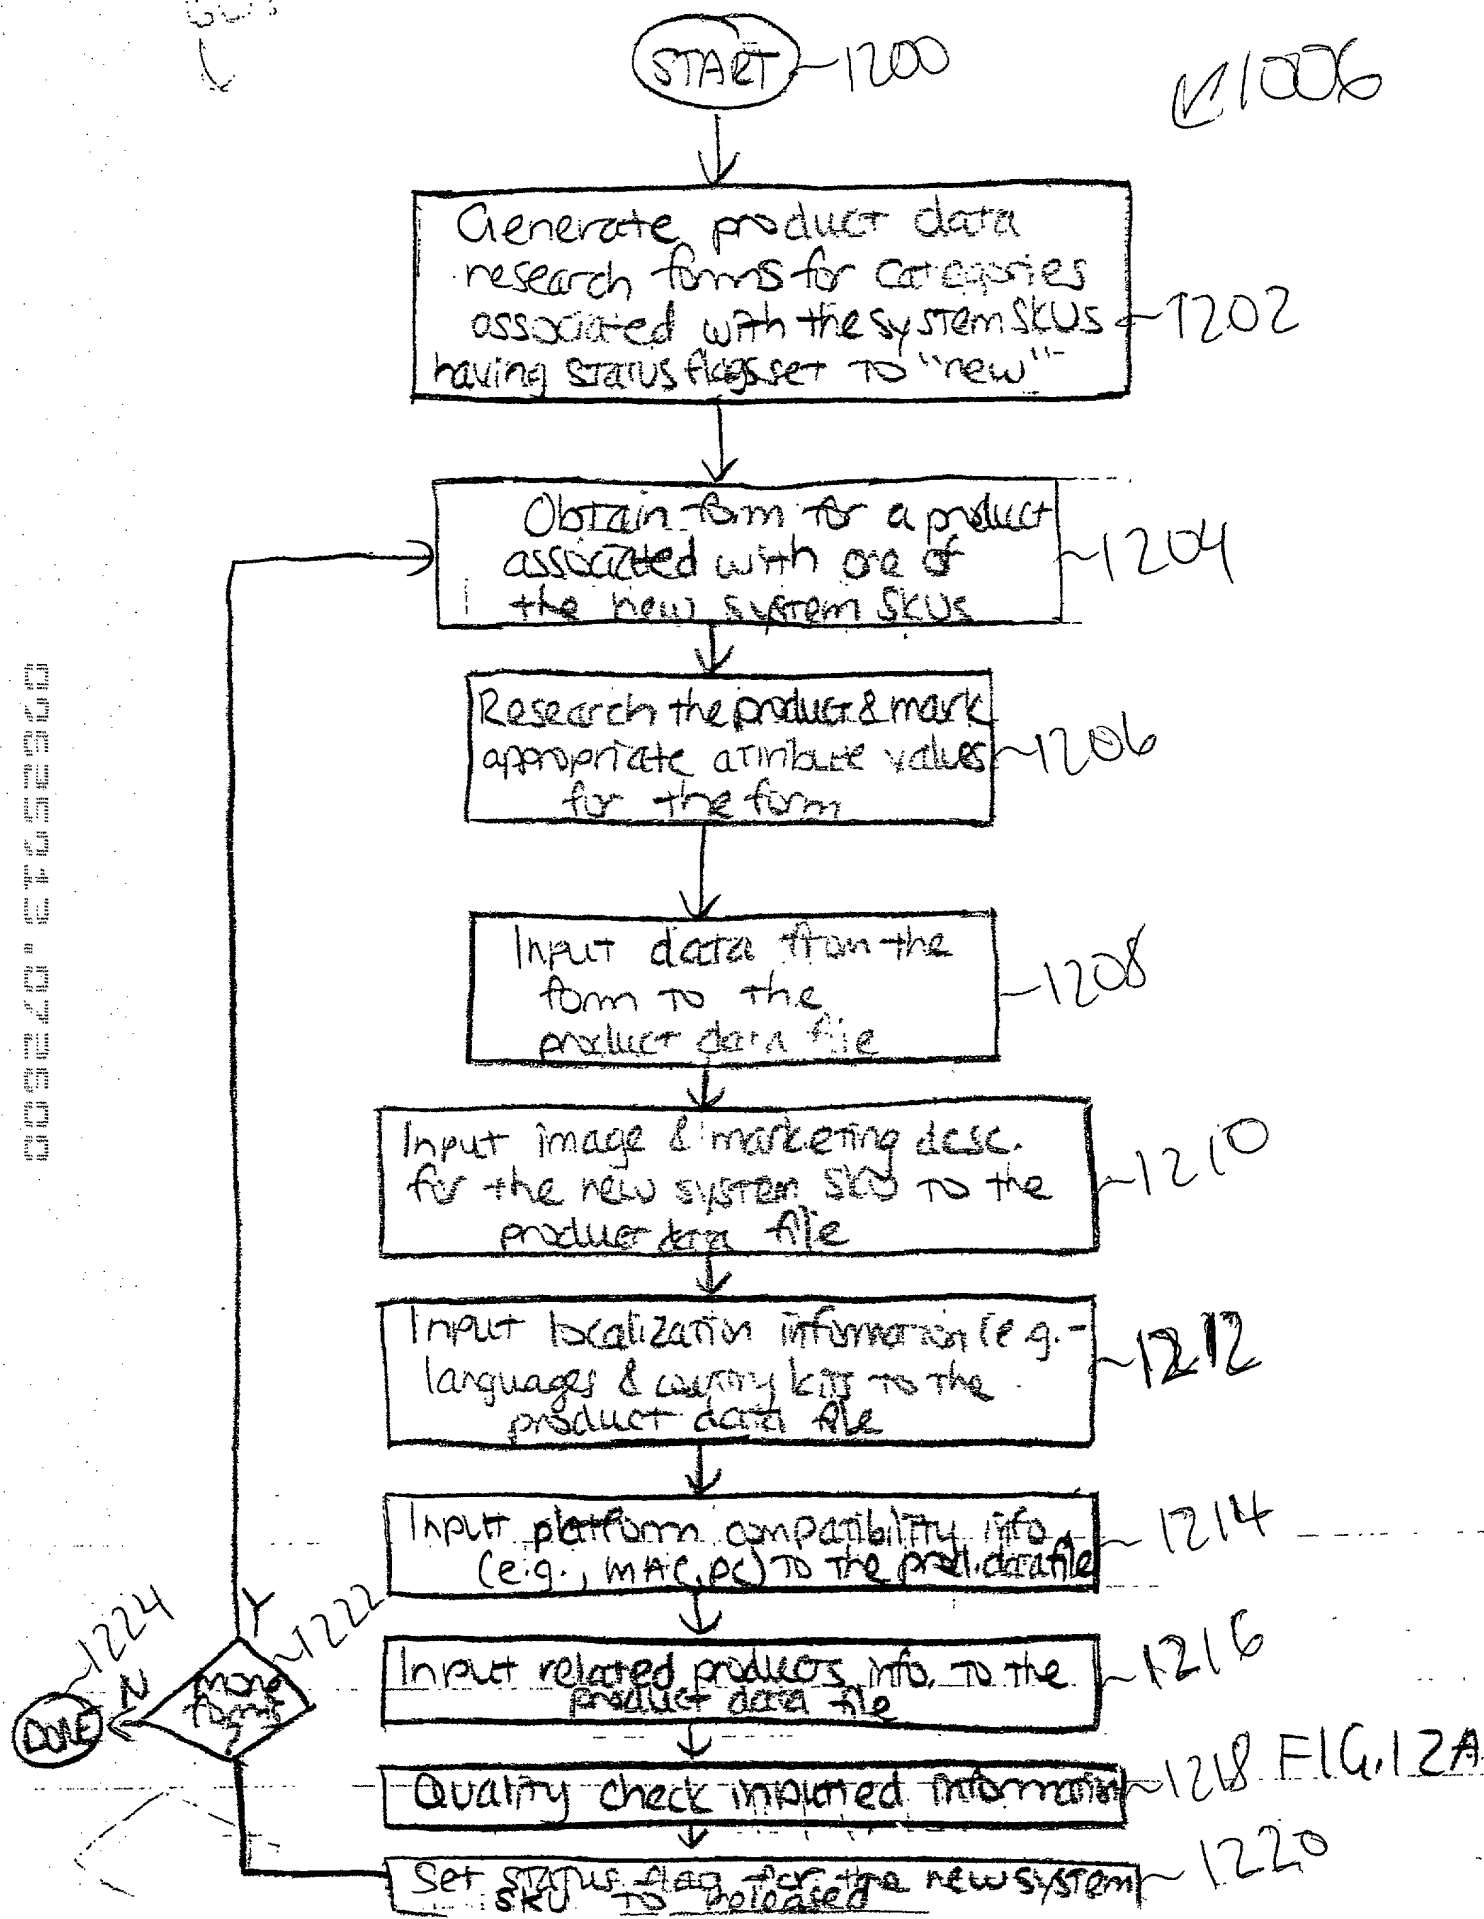 START 1200
1006
Generate product data
research forms for categories
associated with the system SKUs
having status flags set to "new"
1202
Obtain form for a product
associated with one of
the new system SKUs
1204
Research the product & mark
appropriate attribute values
for the form
1206
Input data from the
form to the
product data file
1208
Input image & marketing desc.
for the new system SKU to the
product data file
1210
Input localization information (e.g.-
languages & country kits to the
product data file
1212
Input platform compatibility info
(e.g., MAC, PC) to the prod. data file
1214
Input related products info. to the
product data file
1216
Quality check inputted information
1218
FIG. 12A
Set status flag for the new system
SKU to released
1220
more
forms
?
1222
Y
N
DONE
1224